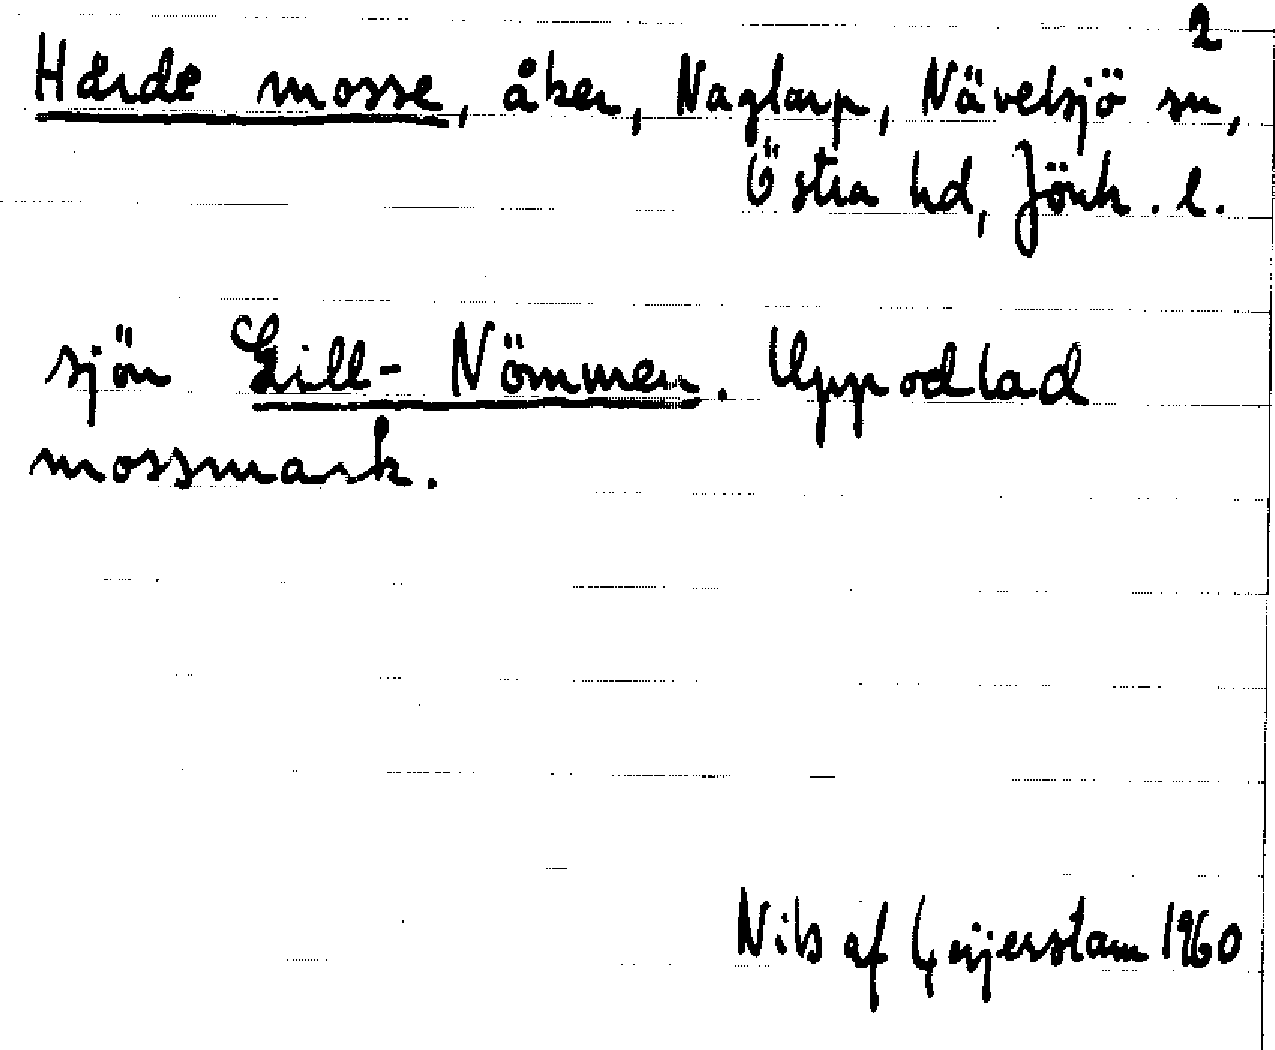 2
Harde mosse, åker, Naglarp, Nävelsjö sn,
Östra hd, Jönk. l.
sjön Lill-Nömmen. Uppodlad
mossmark.
Nils af Geijerstam 1960